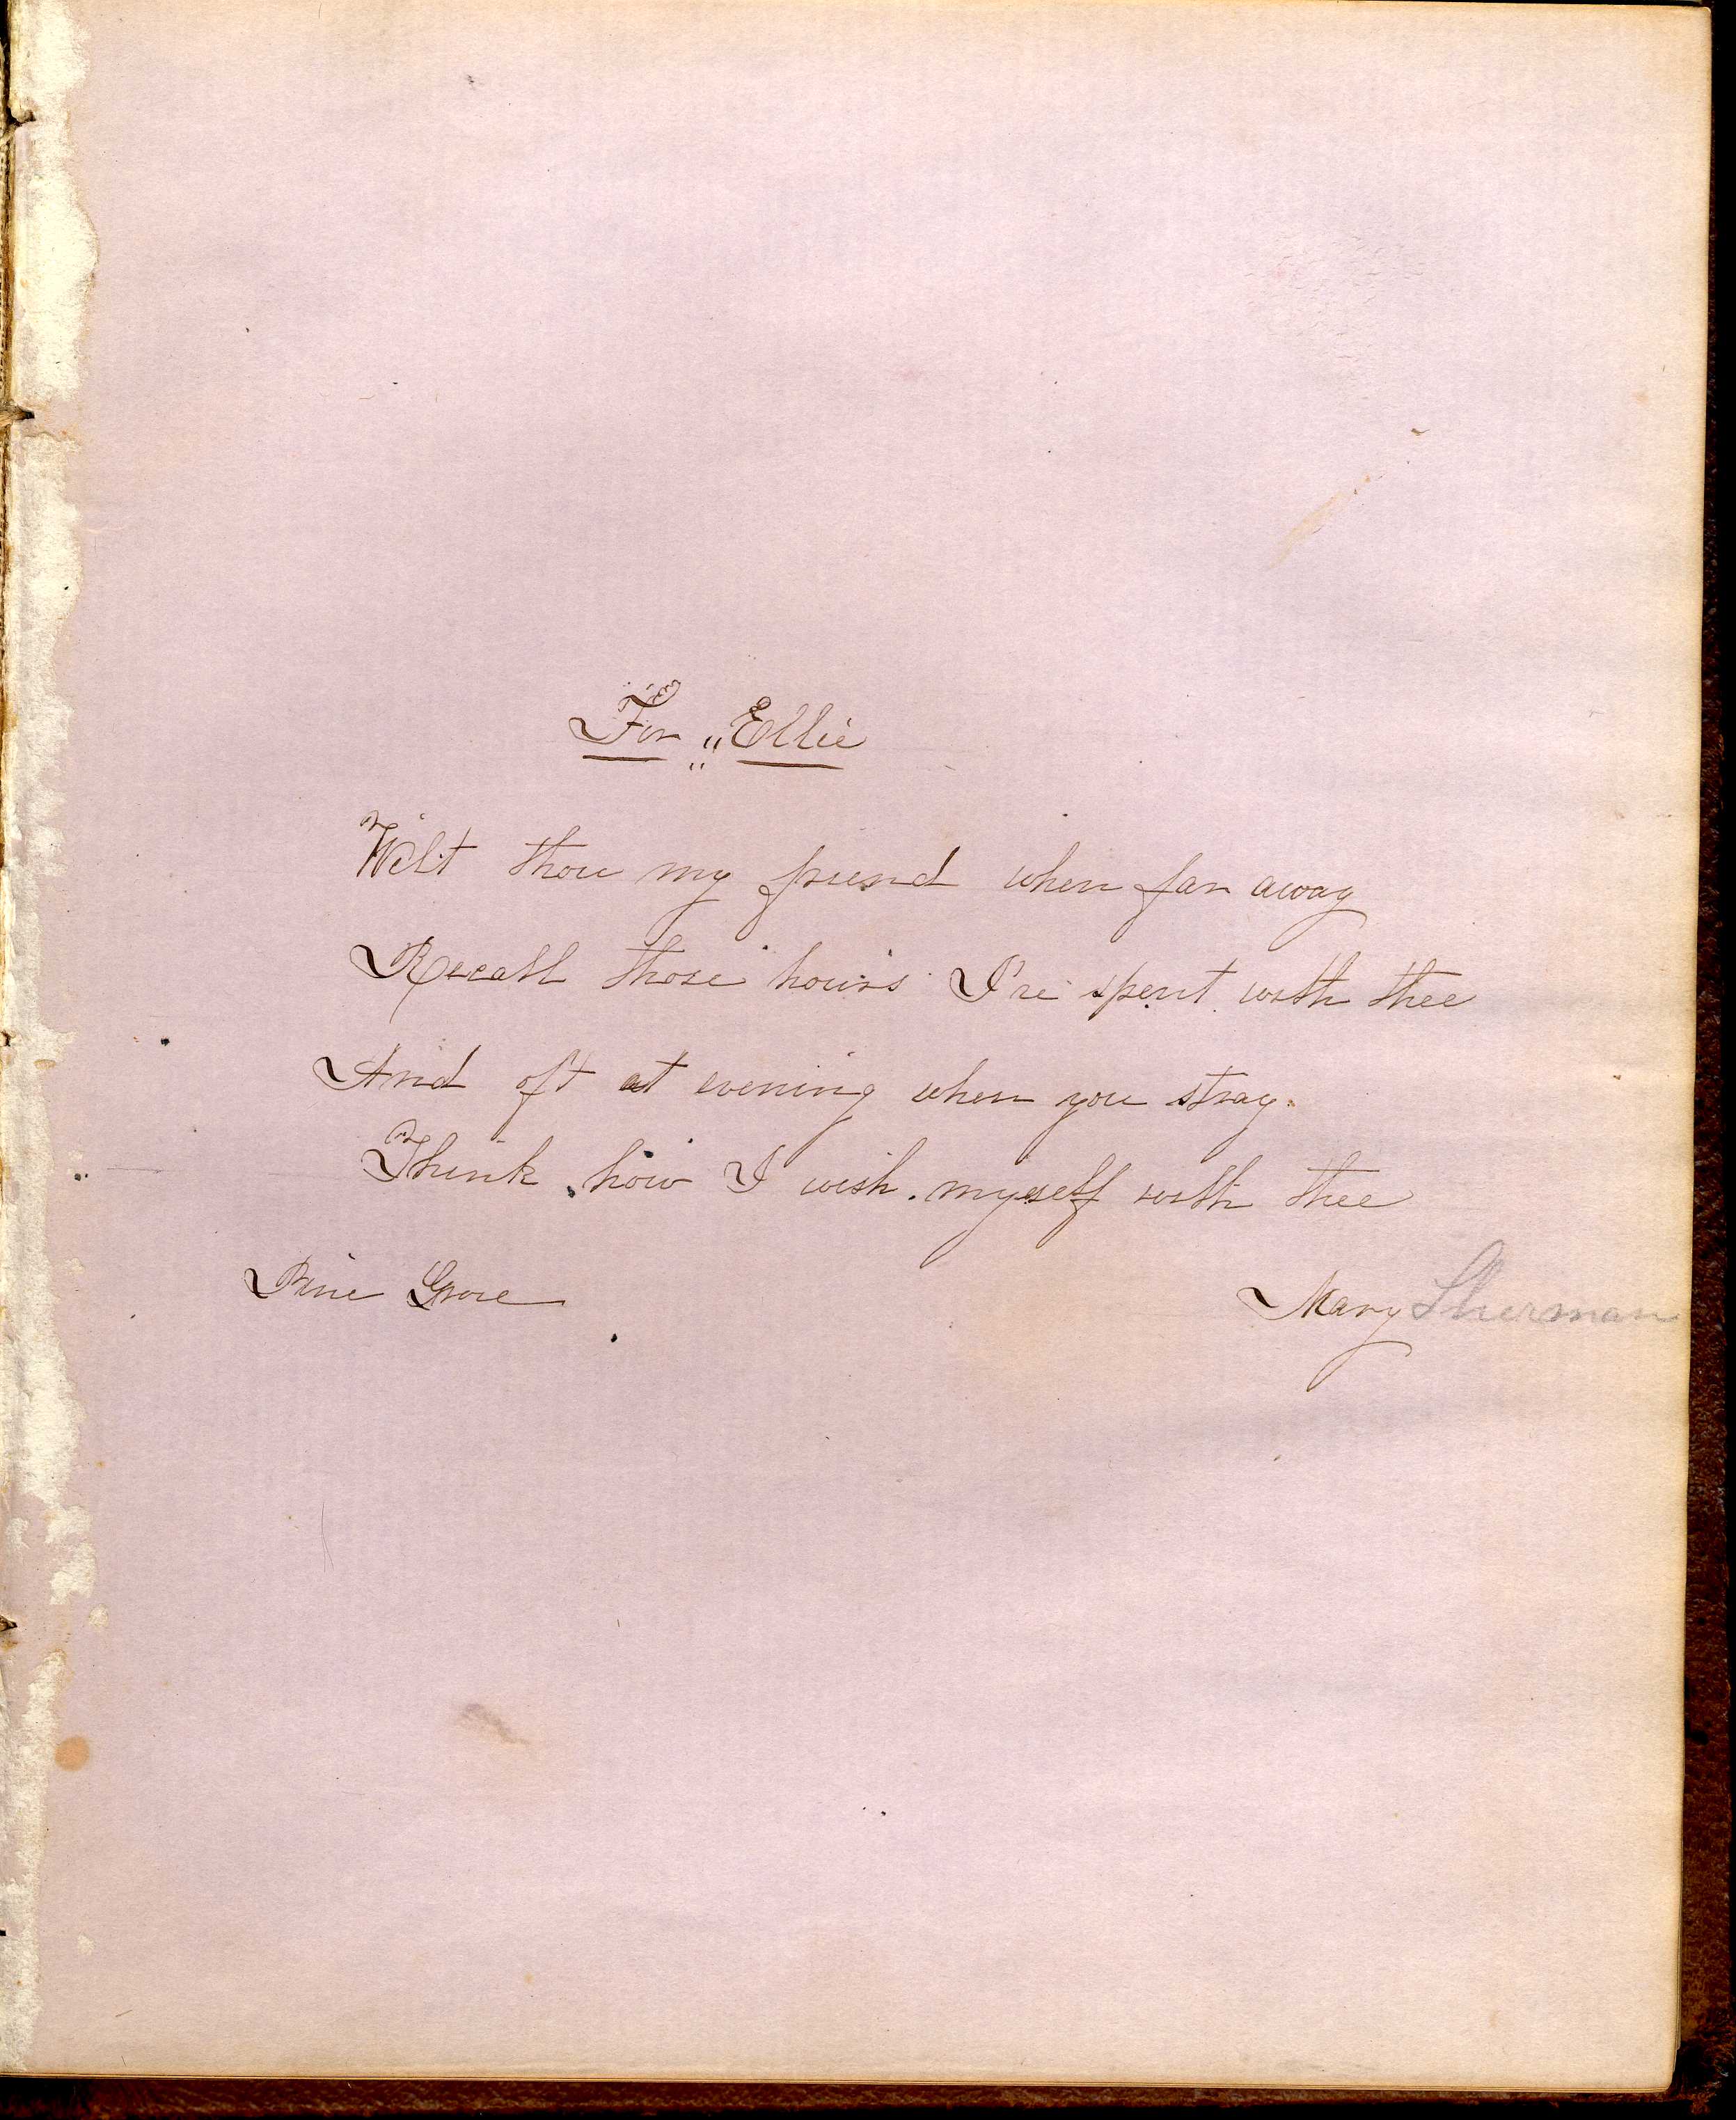 For „Ellie
Wilt thou my friend when far away
Recall those hours I've spent with thee
And oft at evening when you stray.
Think how I wish myself with thee
Pine Grove
Mary Sherman